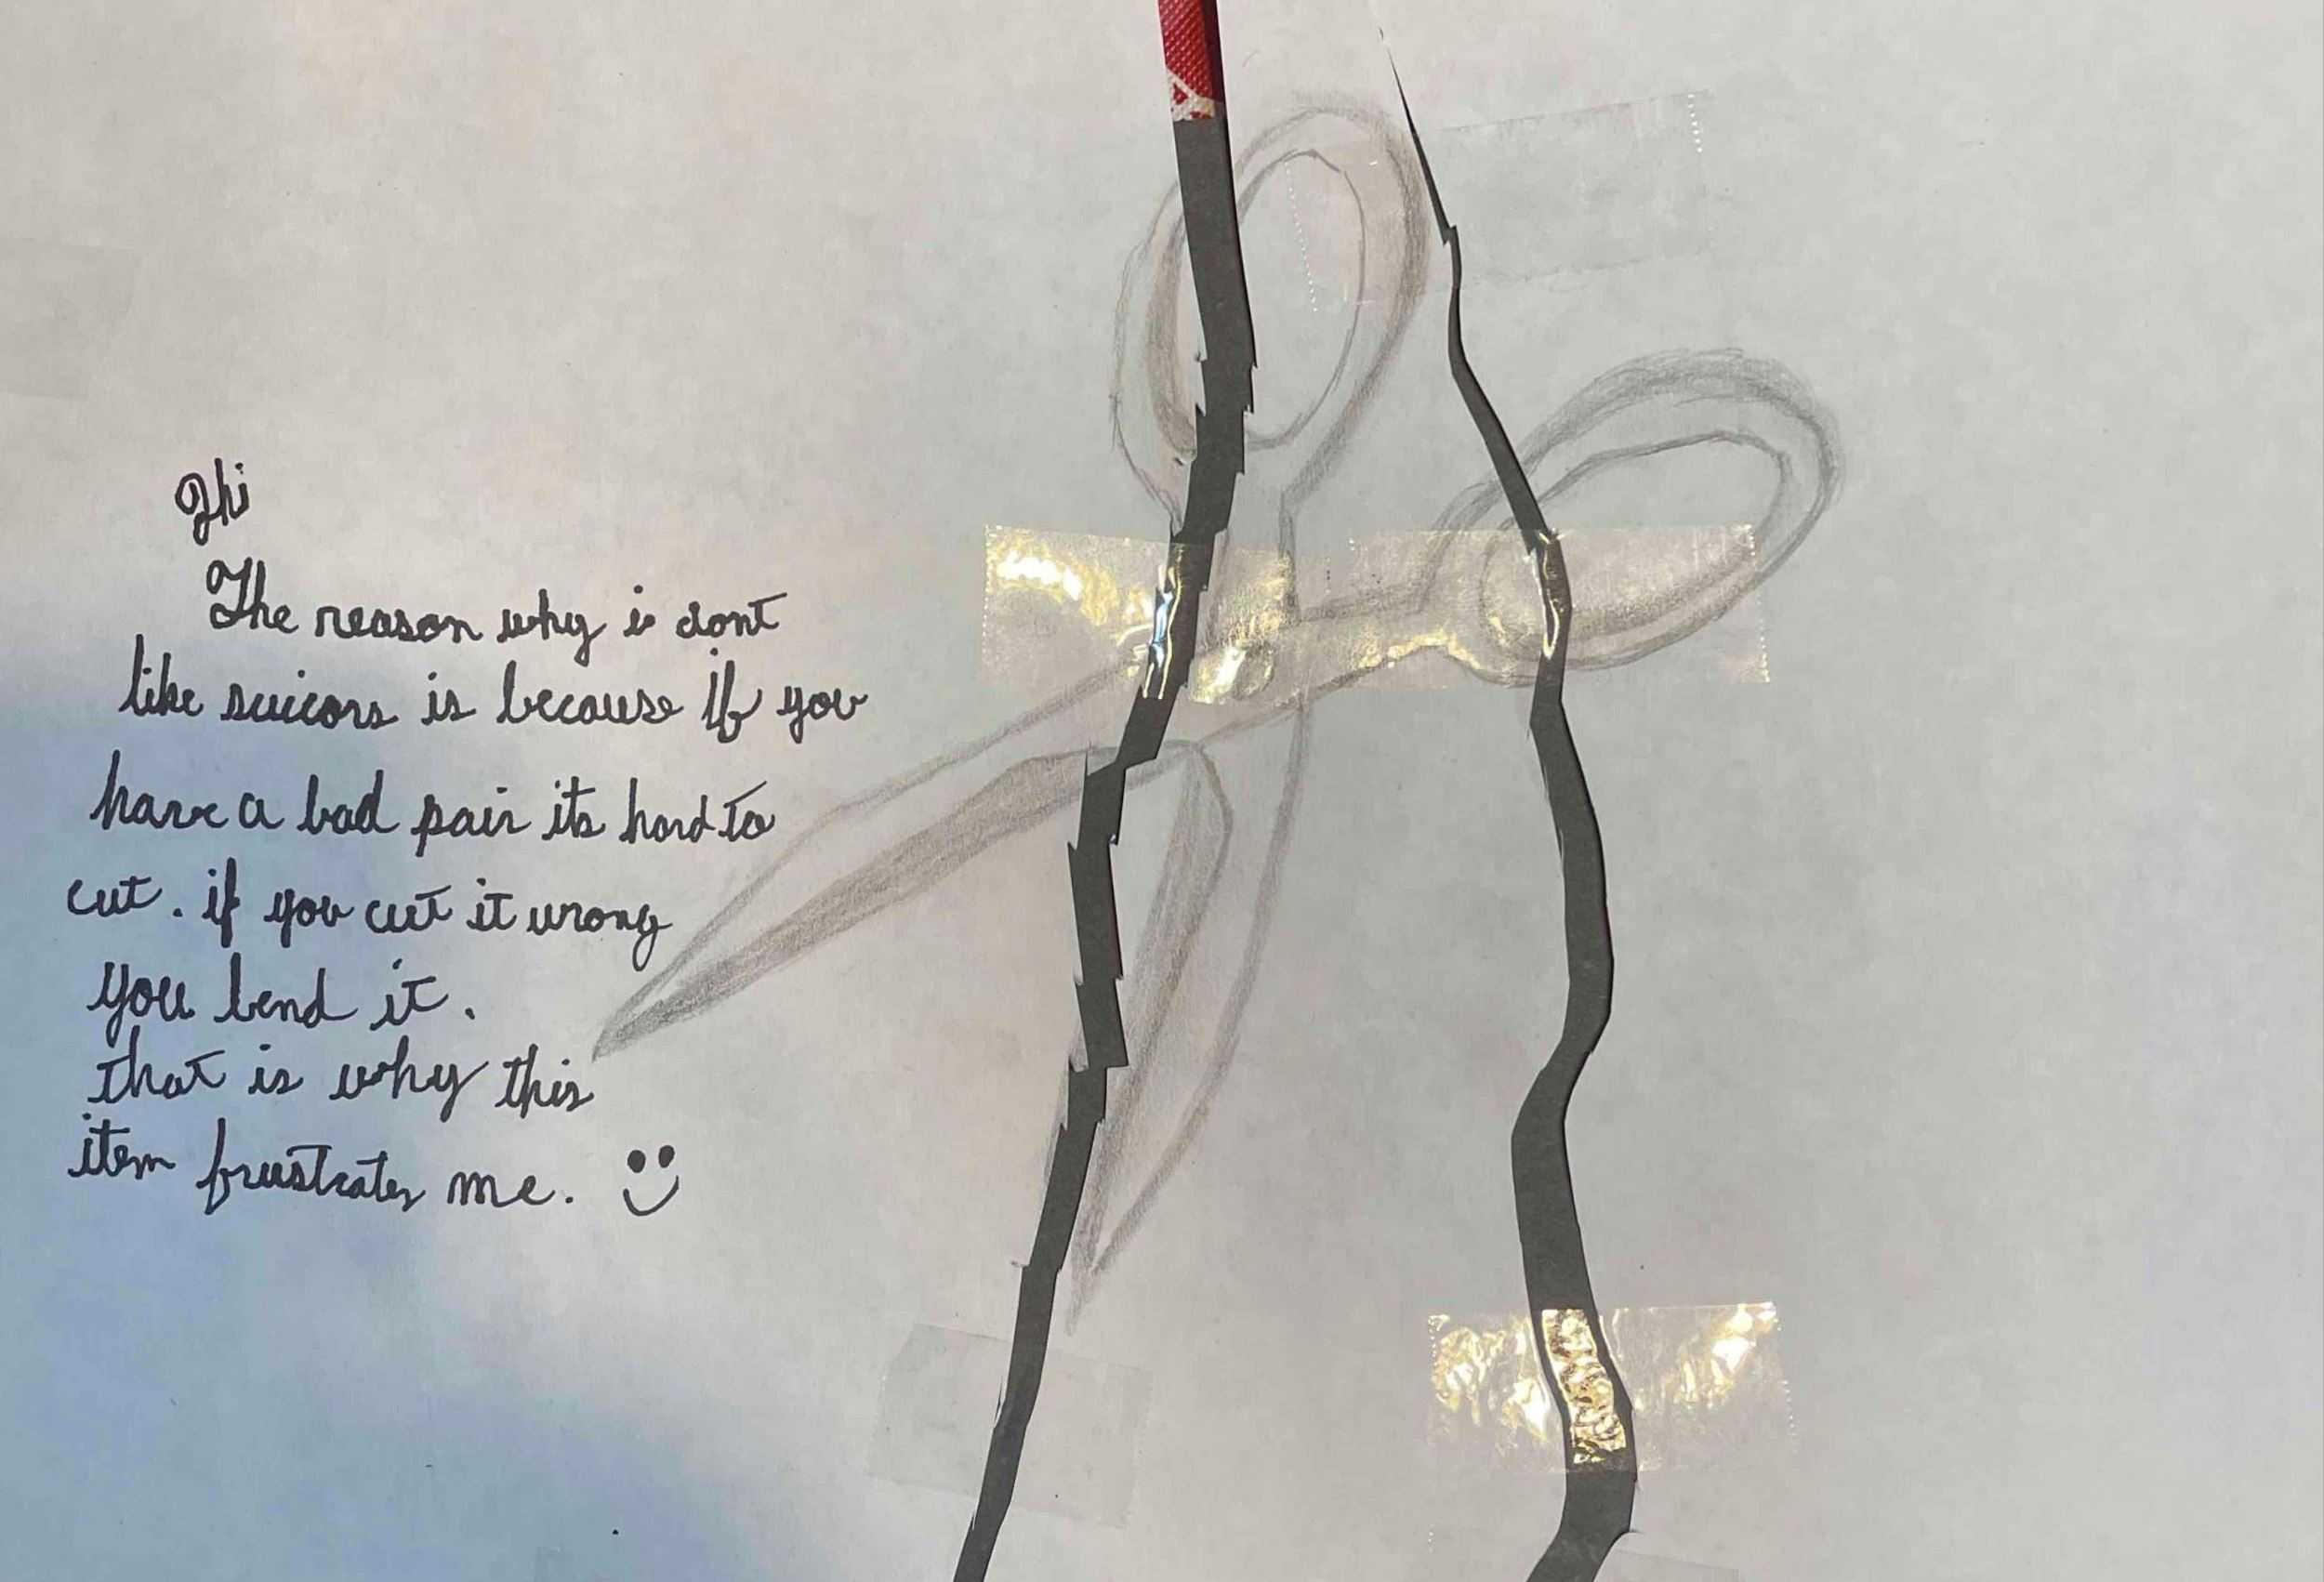 Hi
The reason why i dont
like scicors is because if you
have a bad pair its hard to
cut. if you cut it wrong
you bend it.
that is why this
item frustrates me.